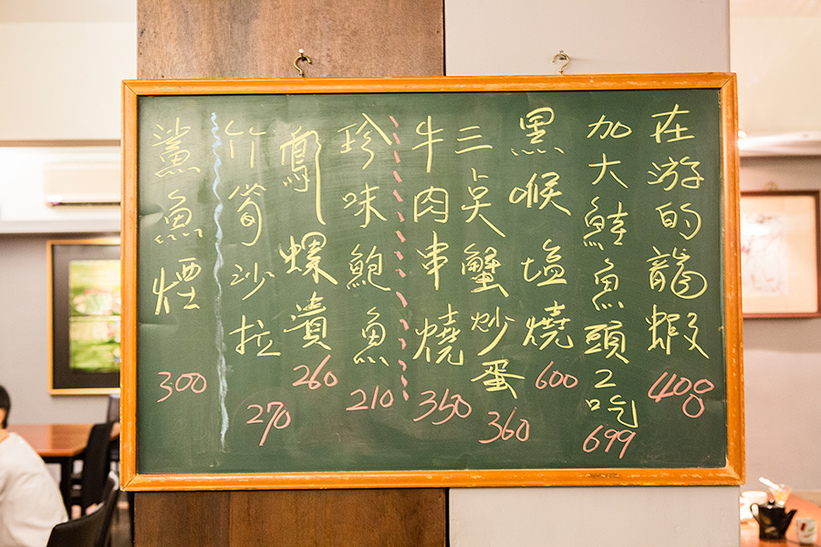 在游的龍蝦 4008
加大鮭魚頭2吃 699
黑喉塩燒 600
三点蟹炒蛋 360
牛肉串燒 350
珍味鮑魚 210
鳳螺漬 260
竹筍沙拉 270
鯊魚煙 300